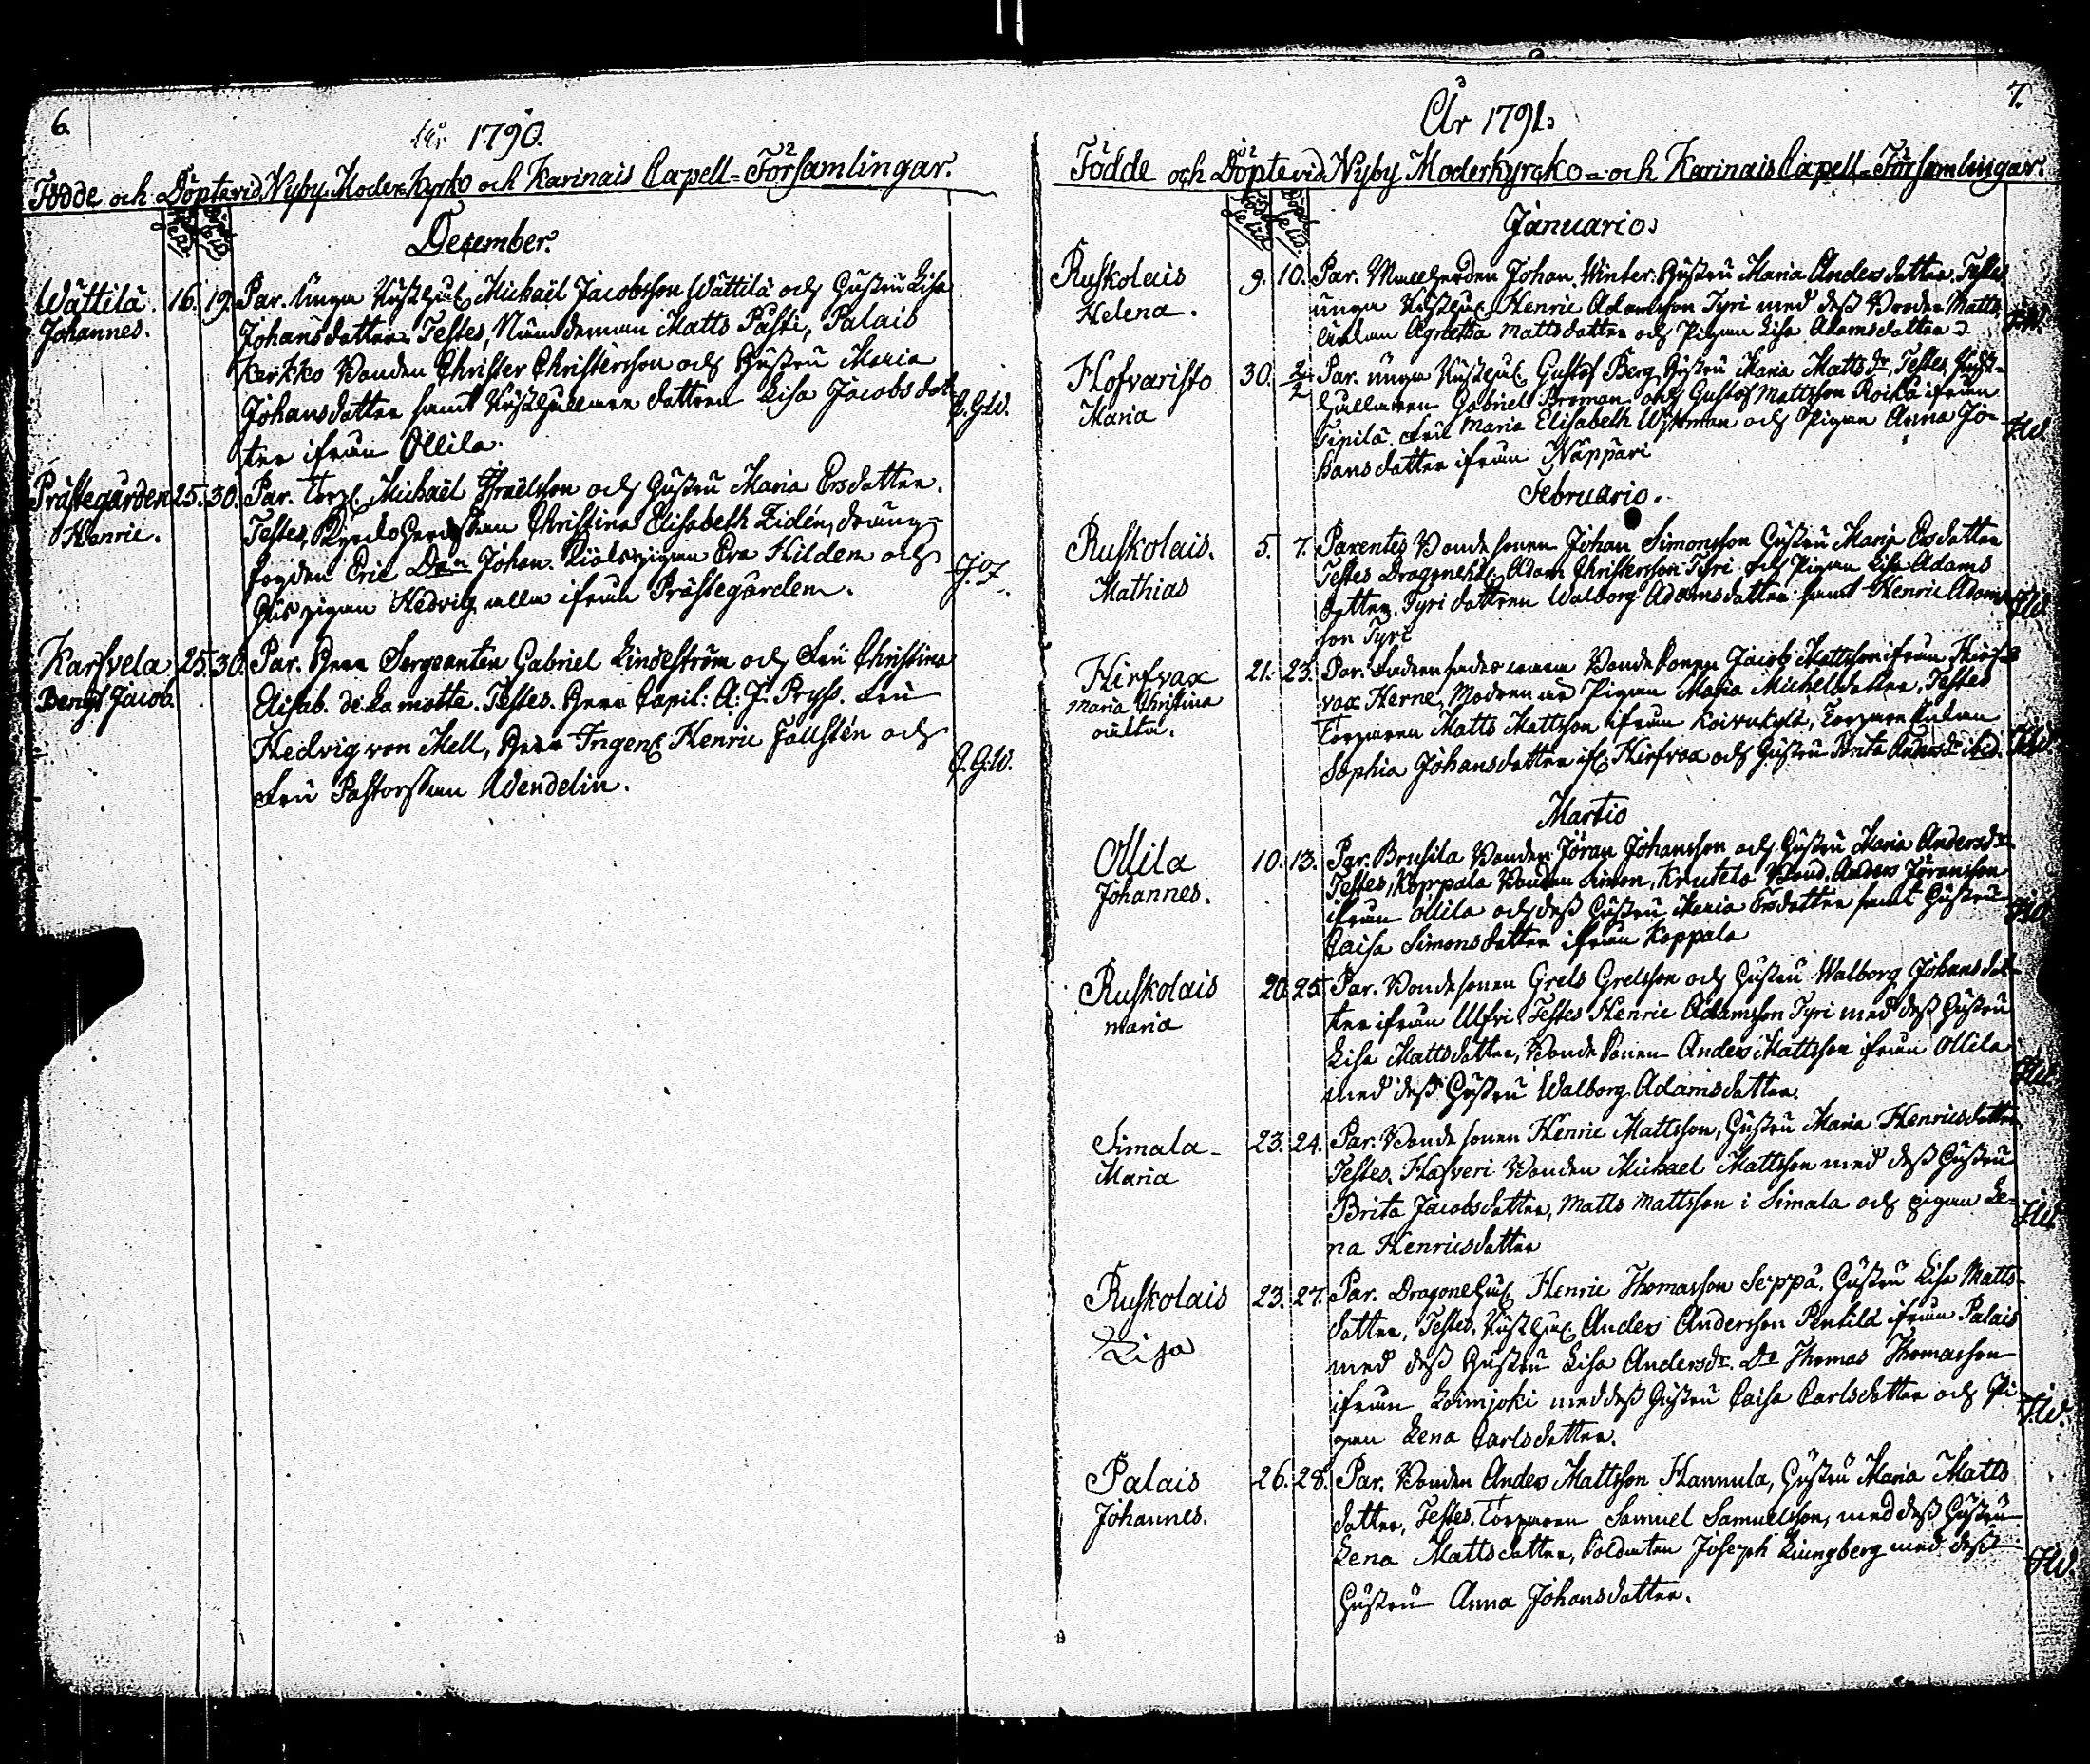 6.
År 1790.
Födde och Döpte vid Nyby Moder Kyrko och Karinais Capell-Församlingar.
December.
Wättilä. 16. 19. Par. Unga Rusthål. Michaël Jacobsson Wättilä och Hustru Lisa
Johannes. Johansdotter. Testes, Nämdeman Matts Pasti, Palais
Kerkko Bonden Christer Christersson och Hustru Maria
Johansdotter samt Rusthållare dottren Lisa Jacobs dot-
ter ifrån Ollila. G.G.W.
Prästegården 25. 30. Par. Torp. Michaël Israelsson och Hustru Maria Ersdotter.
Henric. Testes, Christina Elisabeth Zidén, dräng
fogden Eric Johan. pigan Eva Hilden och
pigan Hedvig alla ifrån Prästegården.
Karfvela 25. 30. Par. Herr Sergeanten Gabriel Lindeström och Fru Christina
Bengt Jacob. Elisab. de La motte. Testes. Herr Capit: A: J. Pryss. Fru
Hedvig von Mell, Herr Henric Fallstén och
Fru Pastorskan Wendelin. G.G.W.
7.
År 1791.
Födde och Döpte vid Nyby Moderkyrcko- och Karinais Capell-Församlingar.
Januario.
Ruskolais 9. 10. Par. Johan Winter. Hustru Maria Anders dotter. Testes
Helena. unga Rusthål. Henric Adamsson Tyri med dess Broder Matts,
Enkan Agnetha Mattsdotter och Pigan Lisa Adamsdotter
Hofvaristo 30. 2/2 Par. unga Rusthål. Gustof Berg, Hustru Maria Matts dr. Testes, Rust-
Maria hållaren Gabriel Broman och Gustof Mattsson Roika ifrån
Sipilä. Fru Maria Elisabeth Wykman och Pigan Anna Jo-
hans dotter ifrån Näppäri
Februario.
Ruskolais. 5. 7. Parentes Bonde sonen Johan Simonsson Hustru Maria Ersdotter
Mathias Testes Dragonehål. Adam Christersson Tyri och Pigan Lisa Adams
dotter. Tyri dottren Walborg Adamsdotter samt Henric Adams
son Tyri
Hirfvax 21. 23. Par. Bonde sonen Jacob Mattsson ifrån Hirf-
Maria Christina vax Herne, Modren är Pigan Maria Michelsdotter, Testes
oäkta. Torparen Matts Mattsson ifrån Koivukylä, Torpare Enkan
Sophia Johansdotter ifr. Hirfvax och Hustru Brita Anders dr. ibid.
Martio
Ollila 10. 13. Par. Brusila Bonden Jöran Johansson och Hustru Maria Anders dr.
Johannes. Testes, Koppala Bonden Simon, Knutelo Bond. Anders Jöransson
ifrån Ollila och dess Hustru Maria Ersdotter samt Hustru
Caisa Simonsdotter ifrån Koppala
Ruskolais 20. 25. Par. Bonde sonen Grels Grelsson och Hustru Walborg Johans dot-
maria ter ifrån Ulfri. Testes Henric Adamsson Tyri med dess Hustru
Lisa Mattsdotter, Bonde Sonen Anders Mattsson ifrån Ollila
med dess Hustru Walborg Adamsdotter.
Simala- 23. 24. Par. Bonde sonen Henric Mattsson, Hustru Maria Henricsdotter
Maria Testes. Hafveri Bonden Michael Mattsson med dess Hustru
Brita Jacobsdotter, Matts Mattsson i Simala och pigan Le-
na Henricsdotter
Ruskolais 23. 27. Par. Dragonehål. Henric Thomasson Seppä. Hustru Lisa Matts-
Lisa dotter, Testes. Rusthål. Anders Andersson Pentilä ifrån Palais
med dess Hustru Lisa Andersdr. Do Thomas Thomasson
ifrån Loimjoki med dess Hustru Caisa Carlsdotter och Pi-
gan Lena Carlsdotter.
Palais 26. 28. Par. Bonden Anders Mattsson Hannula, Hustru Maria Matts
Johannes. dotter, Testes. Torparen Samuel Samuelsson, med dess Hustru
Lena Mattsdotter, Soldaten Joseph Liungberg med dess
Hustru Anna Johansdotter.